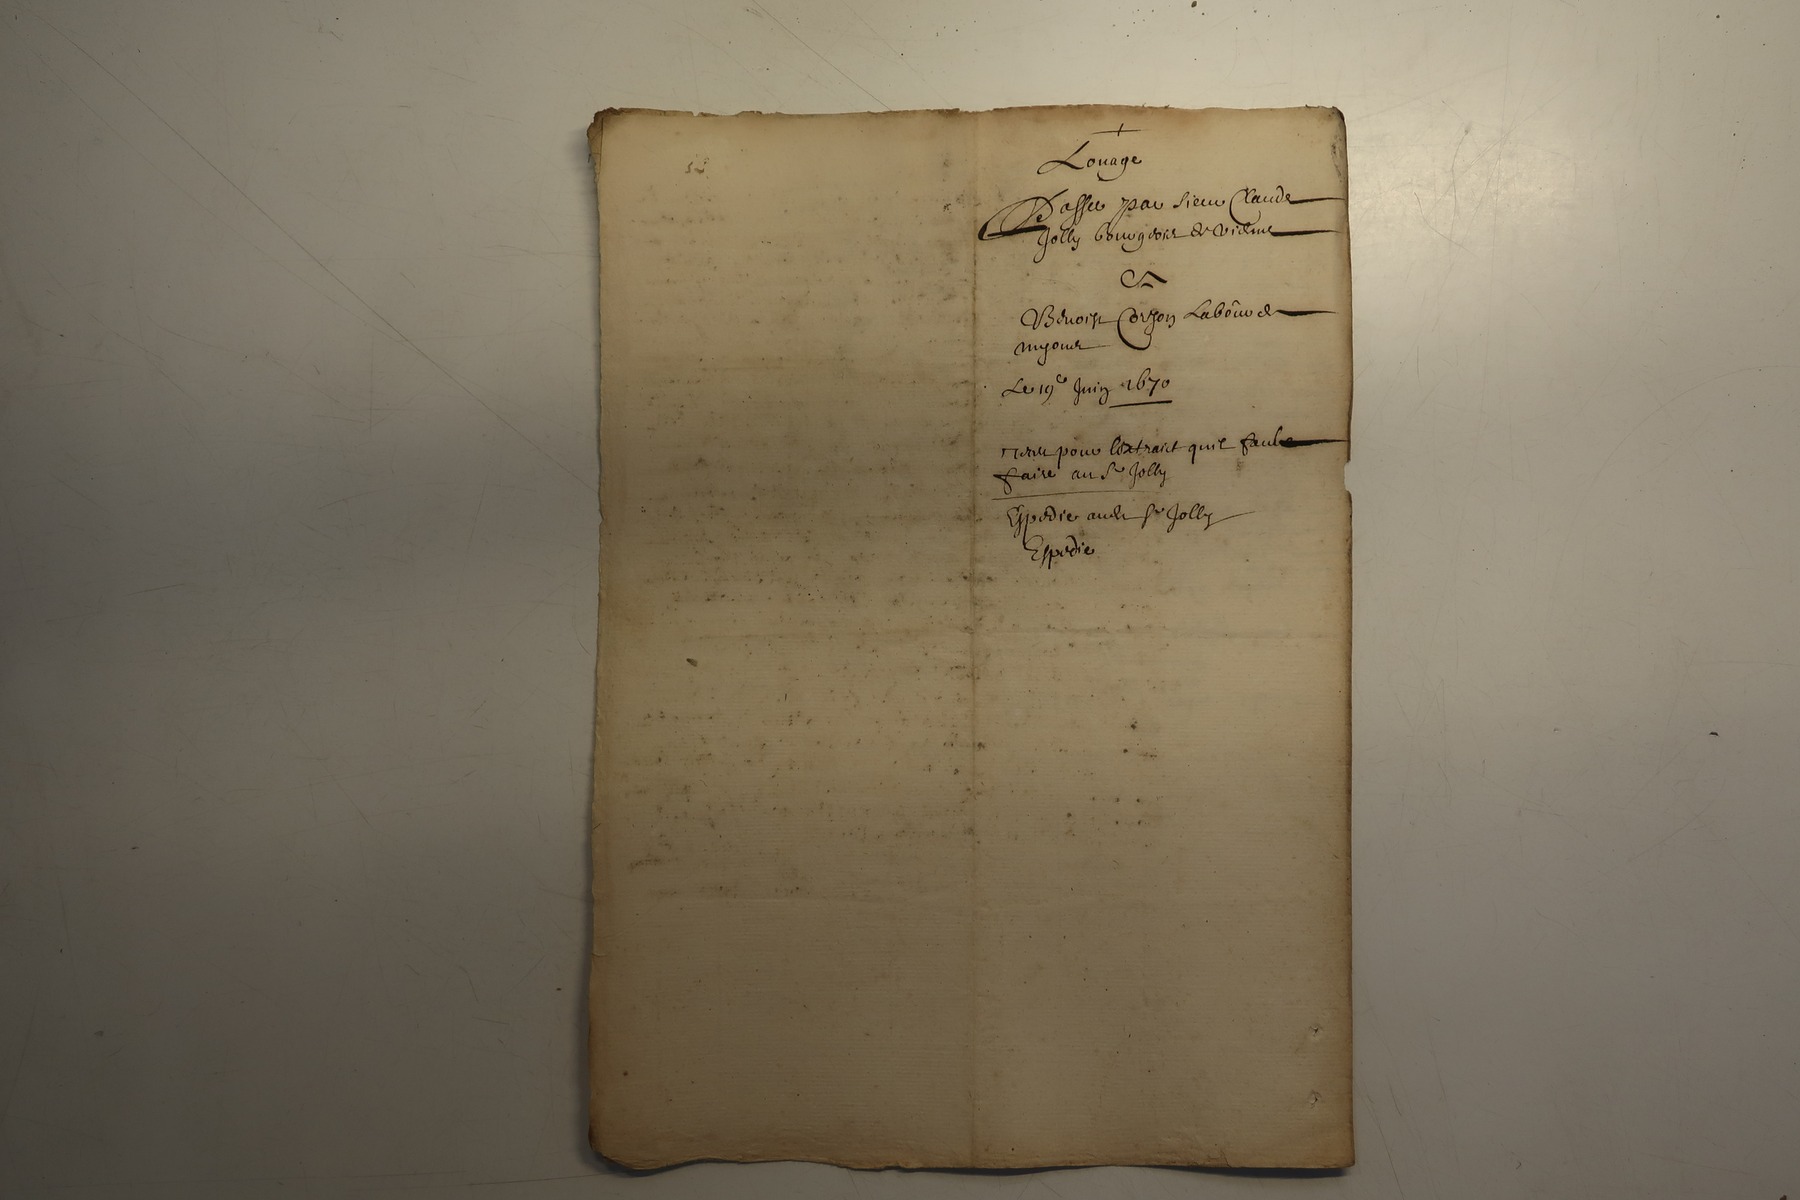 Louage
Passé par Sieur Claude
Jolly bourgeois de Vienne
A
Benoist Laboure de
Le 19e Juin 1670
pour lextraict quil fault
faire au Sr Jolly
Expedie audt Sr Jolly
Expedie